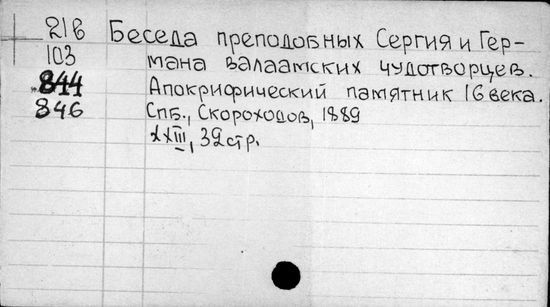 216 Беседа преподобных Сергия и Гер-
103 мана валаамских чудотворцев.
844 Апокрифический памятник 16 века.
846 Спб., Скороходов, 1889
XXIII, 32 стр.